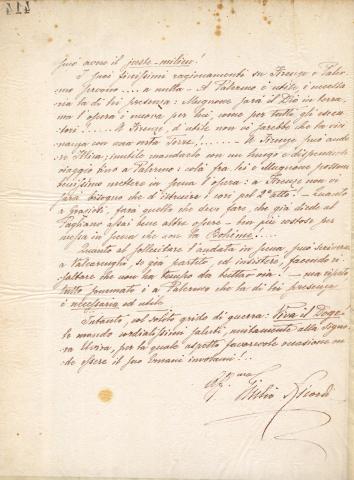 414
può avere il juste-milieu!
E i suoi finissimi ragionamenti su Firenze e Palermo provano .... a nulla - A Palermo è utile, è necessaria la di lei presenza: Mugnone farà il Dio in terra, ma l'opera è nuova per lui, come per tutti gli esecutori!.... A Firenze, d'utile non vi sarebbe che la vicinanza con una certa Torre, ..... A Firenze può andare
inutile mandarlo con un lungo e dispendioso
viaggio fino a Palermo: colà fra lei e Mugnone possono
benissimo mettere in scena l'opera: a Firenze non vi
sarà bisogno che d'istruire i cori pel 2º atto! - Quanto
a farà quello che deve fare, che già diede al
Pagliano assai bene altre opere - ben più costose per
messa in scena che non la Bohème!....
Quanto al sollecitare l'andata in scena, può scrivere
a già partito, ed insistere, facendo risaltare che non ha tempo da buttar via! - ma ripeto
tutto sommato è a Palermo che la di lei presenza
è necessaria ed utile
Intanto, col solito grido di guerra: Viva il Doge
le mando cordialissimi saluti, unitamente alla Signora Elvira, per la quale aspetto favorevole occasione onde essere il suo Ernani involami!..
Giulio Ricordi